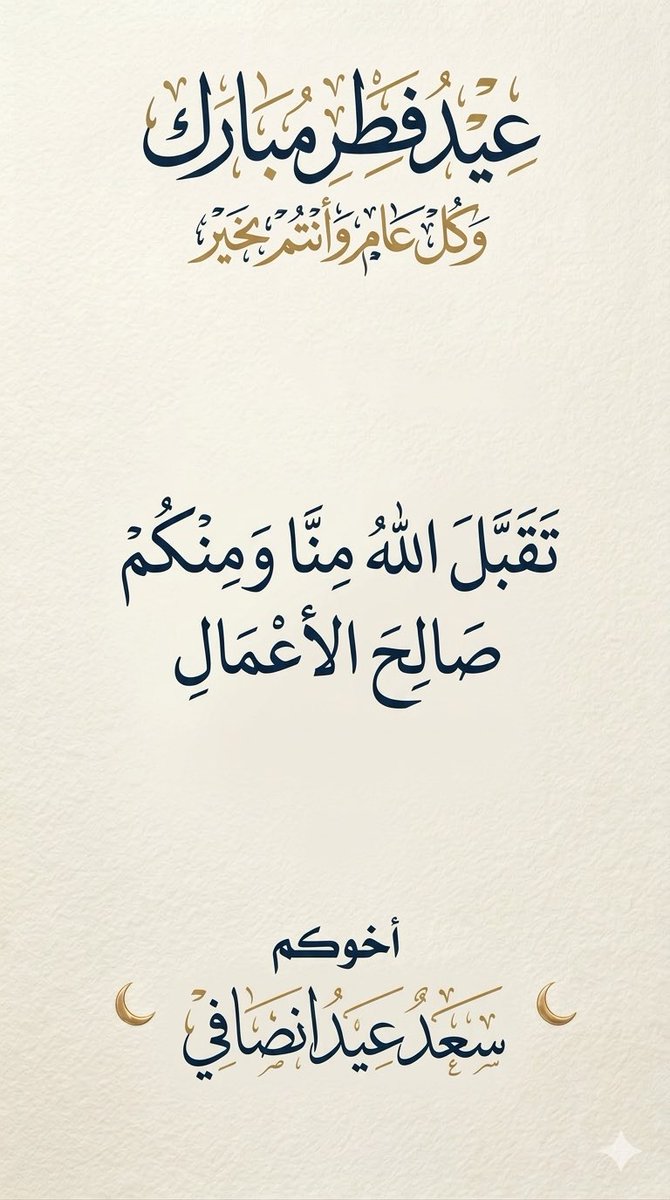 عِيْدُ فِطَرِ مُبَارَك
وَكُلْ عَام وَأَنْتُمْ بِخَيَر
تَقَبَّلَ اللهُ مِنَّا وَمِنْكُمْ
صَالِحَ الأَعْمَالِ
أخوكم
سَعَدُ عِيَدُ انصَافِي